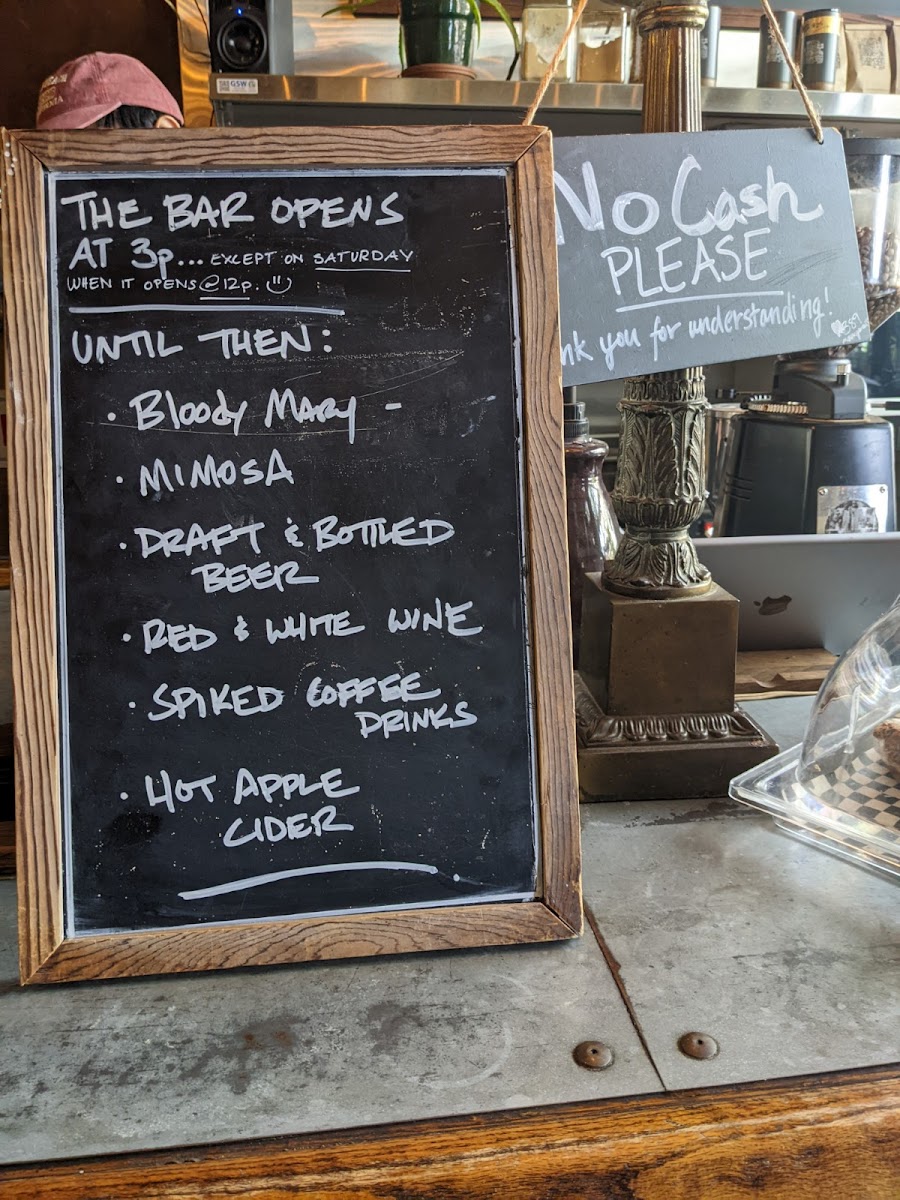 THE BAR OPENS
AT 3p... EXCEPT ON SATURDAY
WHEN IT OPENS @ 12p.
UNTIL THEN:
• Bloody Mary -
• MIMOSA
• DRAFT & BOTTLED
BEER
• RED & WHITE WINE
• SPIKED COFFEE
DRINKS
• HOT APPLE
CIDER
No Cash
PLEASE
nk you for understanding!
GSW